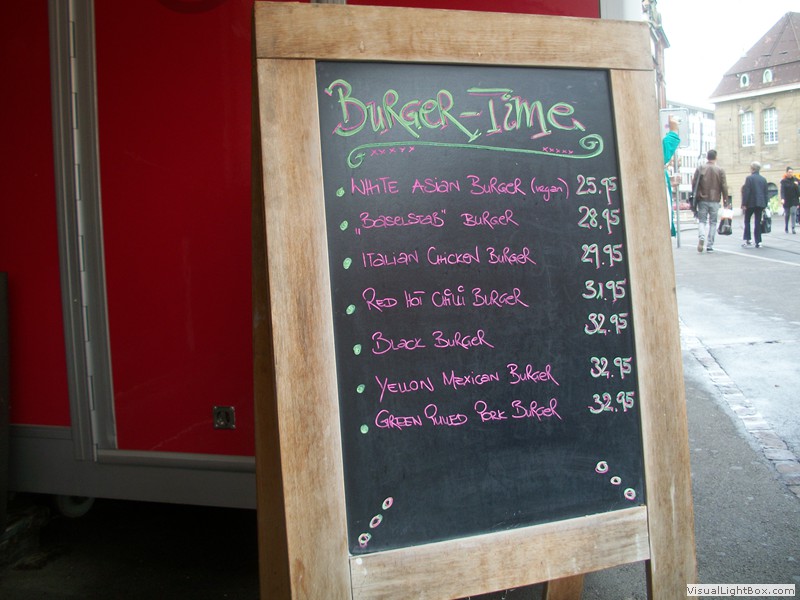 BURGER-TIME
xxxxx xxxxx
WHITE ASIAN BURGER (vegan) 25.95
„BASELSTAB" BURGER 28.95
ITALIAN CHICKEN BURGER 29.95
RED HOT CHILI BURGER 31.95
BLACK BURGER 32.95
YELLOW MEXICAN BURGER 32.95
GREEN PULLED PORK BURGER 32.95
VisualLightBox.com